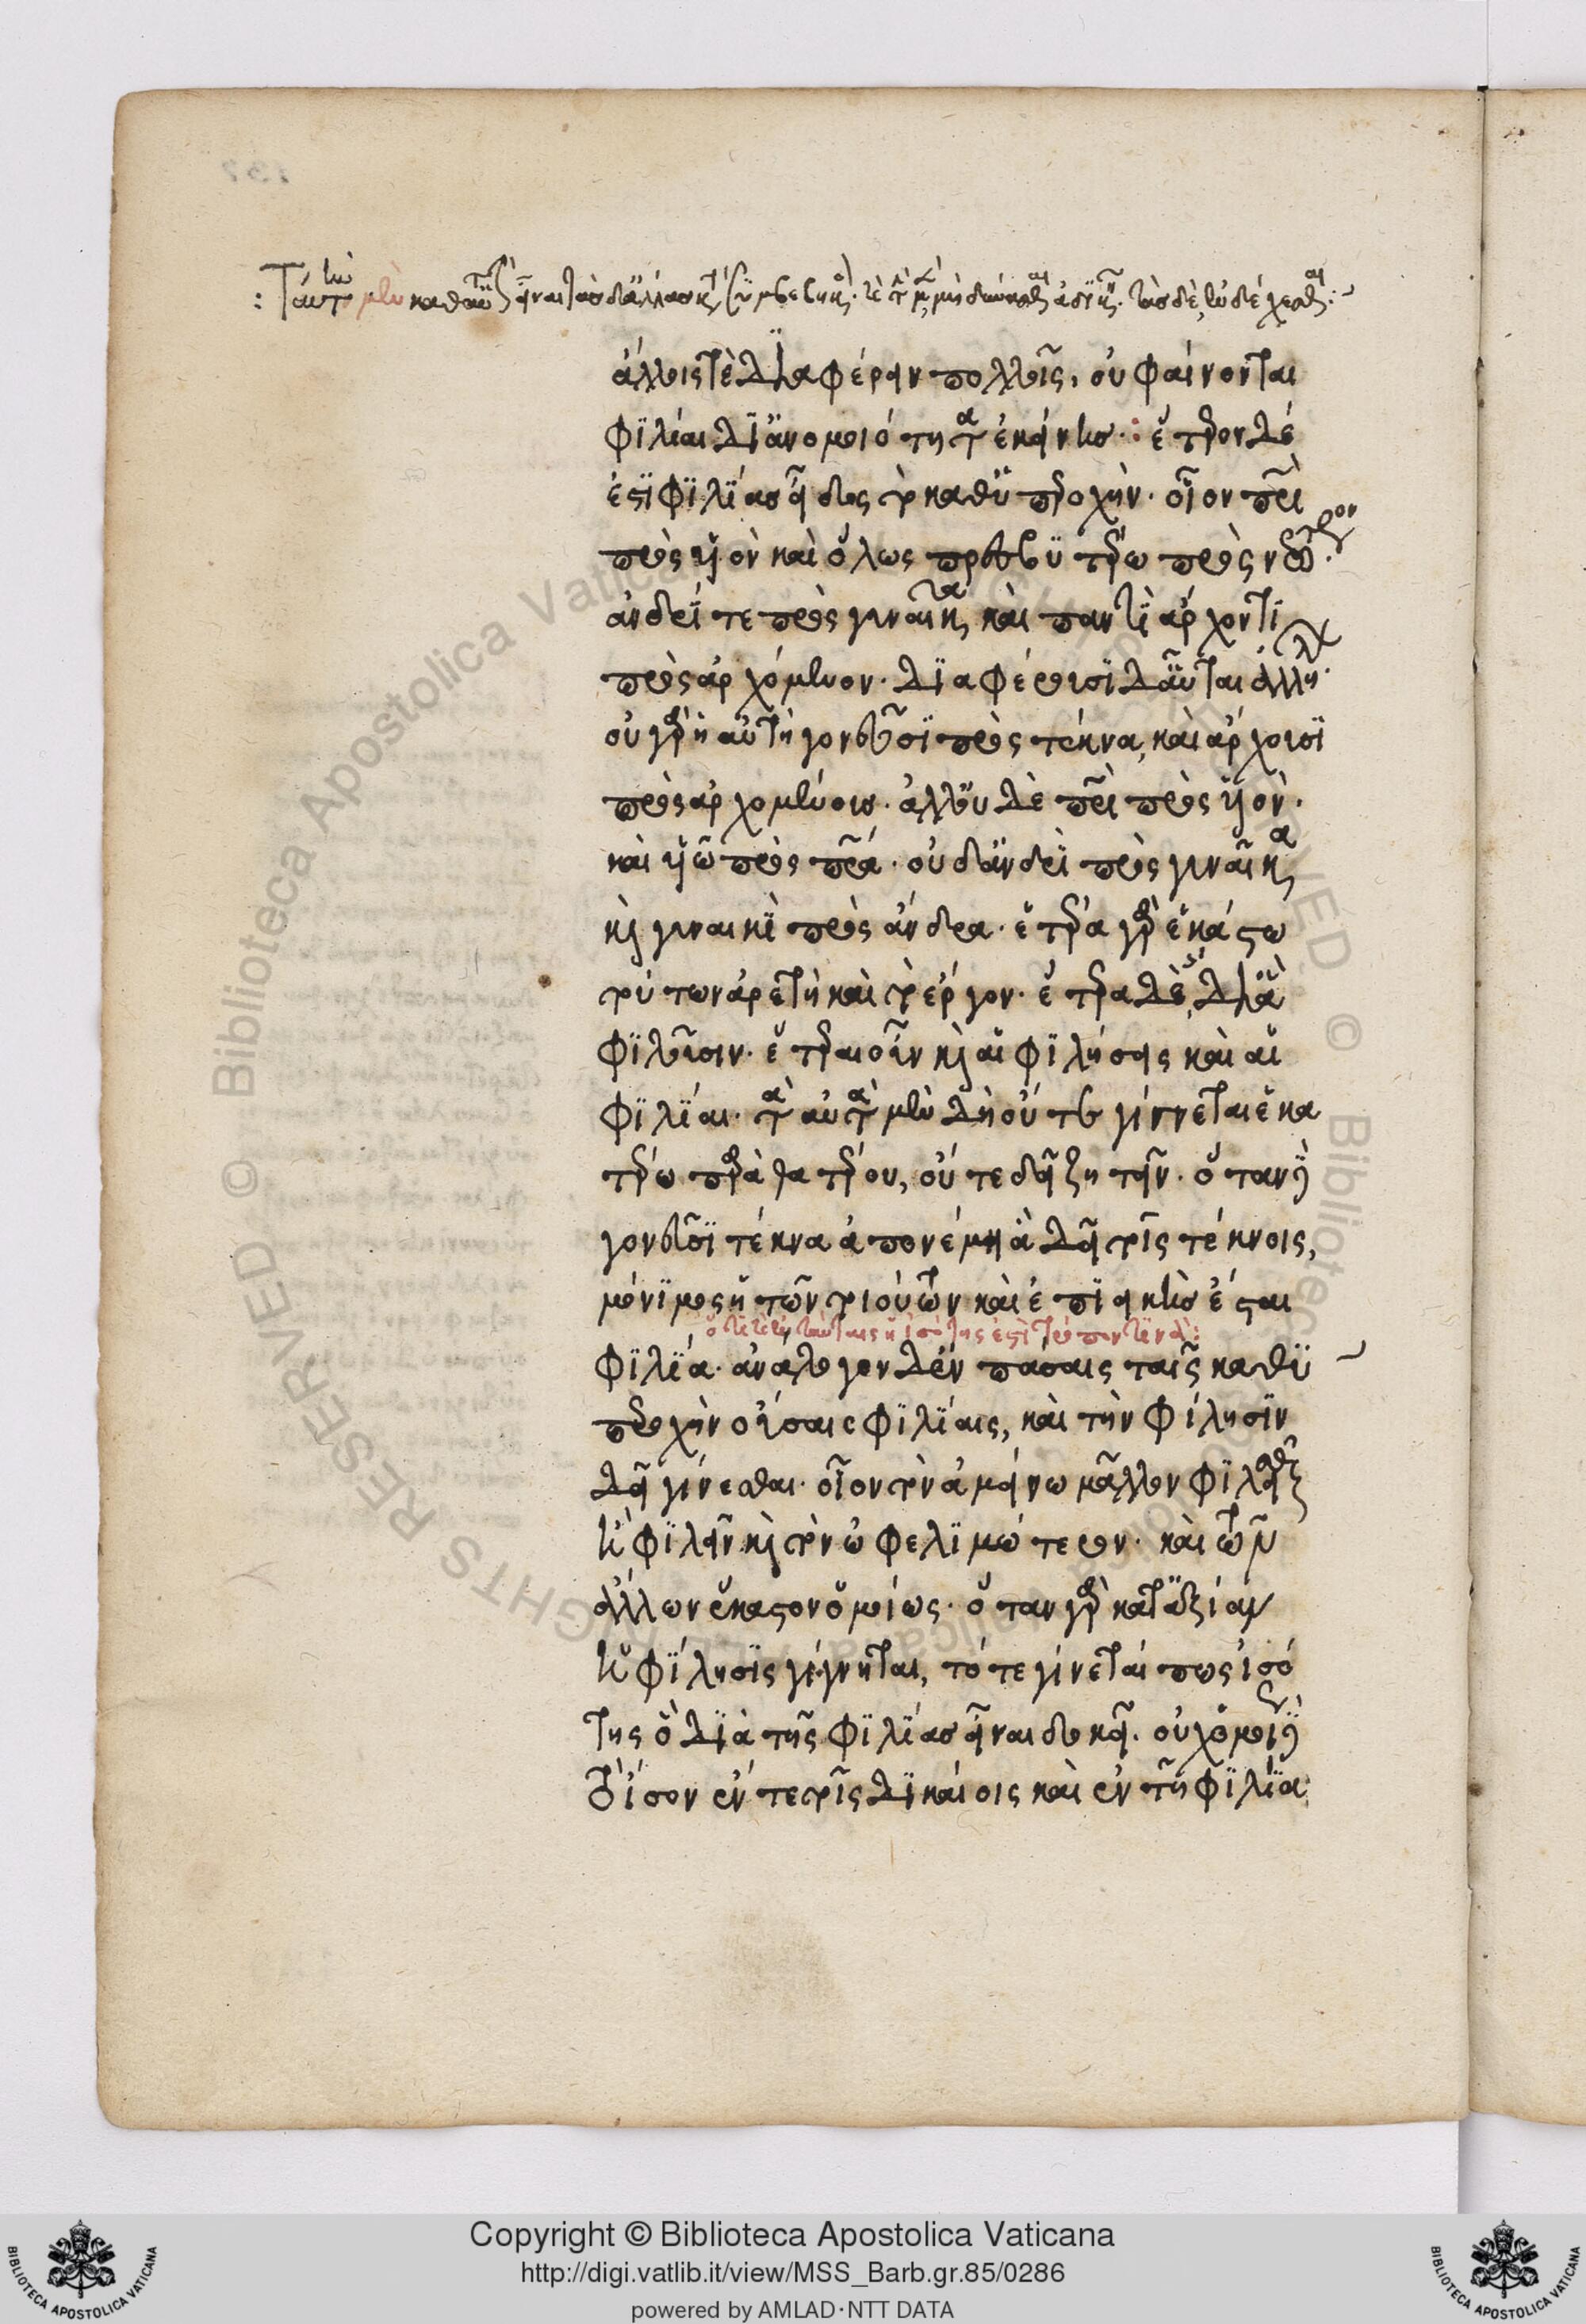 ἄλλοις τὲ διαφέρειν πολλοῖς, οὐ φαίνονται
φιλίαι δι ἀνομοιότητα ἐκείνης. ἕτερον δέ
ἐστι φιλίας εἶδος τὸ καθ ὑπεροχὴν. οἷον πατρὶ
πρὸς υἱὸν καὶ ὅλως πρεσβυτέρω πρὸς νεώτερον.
ἀνδρί τε πρὸς γυναῖκα, καὶ παντὶ ἄρχοντι
πρὸς ἀρχόμενον. διαφέρουσι δ αὗται ἀλλήλων.
οὐ γὰρ ἡ αὐτὴ γονεῦσι πρὸς τέκνα, καὶ ἄρχουσι
πρὸς ἀρχομένους. ἀλλ οὐδὲ πατρὶ πρὸς υἱὸν.
καὶ υἱῶ πρὸς πατέρα. οὐδ ἀνδρὶ πρὸς γυναῖκα,
καὶ γυναικὶ πρὸς ἄνδρα. ἑτέρα γὰρ ἑκάστω
τούτων ἀρετὴ καὶ τὸ ἔργον. ἕτερα δὲ, δι ἃ
φιλοῦσιν. ἕτεραι οὖν καὶ αἱ φιλήσεις καὶ αἱ
φιλίαι. ταὐτὰ μὲν δὴ οὔτε γίγνεται ἑκα
τέρω παρὰ θατέρου, οὔτε δεῖ ζητεῖν. ὅταν δὲ
γονεῦσι τέκνα ἀπονέμη ἃ δεῖ τοῖς τέκνοις,
μόνιμος ἡ τῶν τοιούτων καὶ ἐπιεικὴς ἔσται
φιλία. ἀνάλογον δ ἐν πάσαις ταῖς καθ ὑ
περοχὴν οὔσαις φιλίαις, καὶ τὴν φίλησιν
δεῖ γίνεσθαι. οἷον τὸν ἀμείνω μᾶλλον φιλεῖσθαι
ἢ φιλεῖν καὶ τὸν ὠφελιμώτερον. καὶ τῶν
ἄλλων ἕκαστον ὁμοίως. ὅταν γὰρ κατ ἀξίαν
ἡ φίλησις γίγνηται, τότε γίνεταί πως ἰσό
της ὃ διὰ τῆς φιλίας εἶναι δοκεῖ. οὐχ ὁμοίως δὲ
τὸ ἴσον ἔν τε τοῖς δικαίοις καὶ ἐν τῆ φιλία
Copyright © Biblioteca Apostolica Vaticana
http://digi.vatlib.it/view/MSS_Barb.gr.85/0286
powered by AMLAD·NTT DATA
BIBLIOTECA APOSTOLICA VATICANA
BIBLIOTECA APOSTOLICA VATICANA